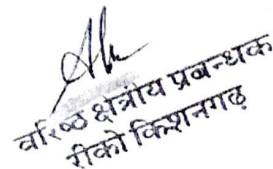 वरिष्ठ क्षेत्रीय प्रबन्धक
रीको किशनगढ़